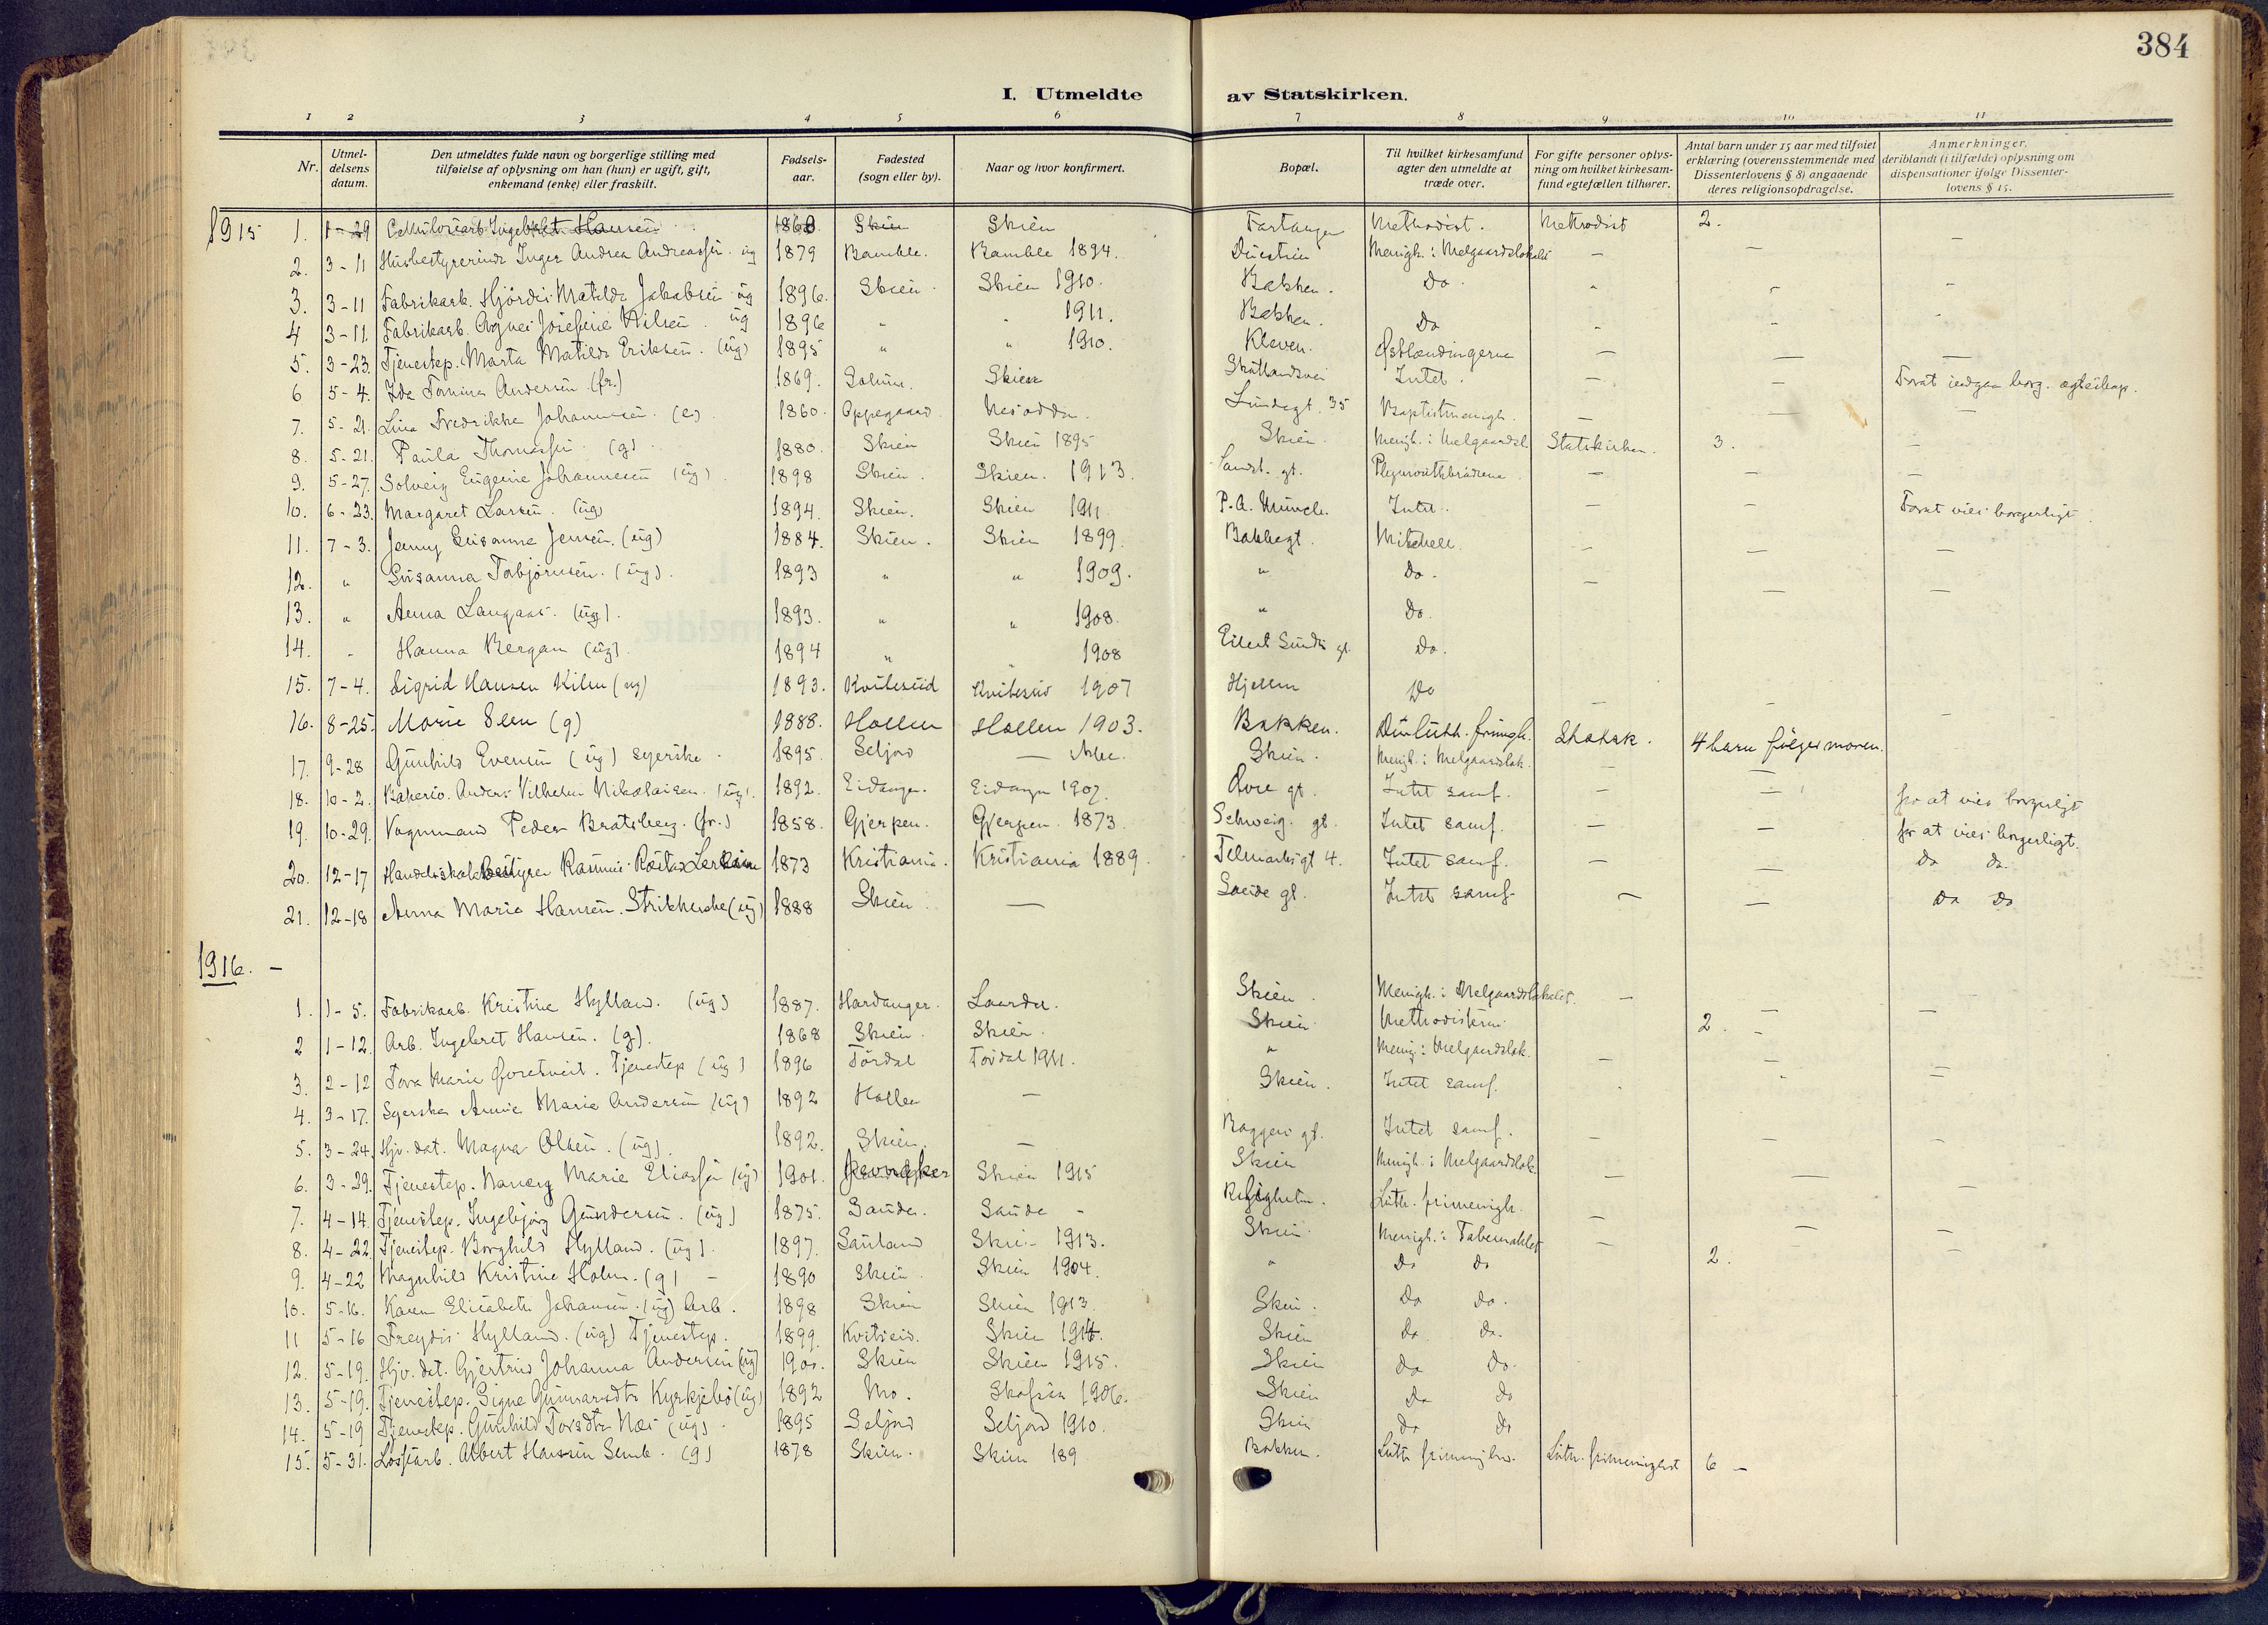 384
I. Utmeldte av Statskirken.
1 2 3 4 5 6 7 8 9 10 11
Nr. | Utmel-delsens datum. | Den utmeldtes fulde navn og borgerlige stilling med tilføielse af oplysning om han (hun) er ugift, gift, enkemand (enke) eller fraskilt. | Fødsels-aar. | Fødested (sogn eller by). | Naar og hvor konfirmert. | Bopæl. | Til hvilket kirkesamfund agter den utmeldte at træde over. | For gifte personer oplys-ning om hvilket kirkesam-fund egtefællen tilhører. | Antal barn under 15 aar med tilføiet erklæring (overensstemmende med Dissenterlovens § 8) angaaende deres religionsopdragelse. | Anmerkninger, deriblandt (i tilfælde) oplysning om dispensationer ifølge Dissenter-lovens § 15.
1915
1. 1-29 Ingebret Hansen 1868 Skien Skien Methodist. Methodist 2.
2. 3-11 Husbestyrerinde Inger Andrea Andreassen. ug 1879 Bamble. Bamble 1894. Menigh. i Melgaardslokalet — — —
3. 3-11 Fabrikarb. Hjördis Matilde Jakobsen ug 1896. Skien Skien 1910. Bakken. Do - - -
4 3-11 Fabrikarb. Agnes Josefine Nilsen. ug 1896 " " 1911. Bakken. Do - - -
5. 3-23. Tjenestep. Marta Matilde Eriksen. (ug) 1895 " " 1910. Kleven. Østlændingerne — — —
6 5-4. Ida Tomina Andersen (fr.) 1869. Solum. Skien Intet. — — Forat indgaa borg. ægteskap.
7. 5-21. Lina Fredrikke Johannesen. (e) 1860. Oppegaard. Nesodden. Lundegt. 35 Baptistmenigh. — — —
8. 5-21. Paula Thomassen (g) 1880. Skien Skien 1895 Skien Menigh. i Melgaardsl. Statskirken. 3. —
9. 5-27. Solveig Eugenie Johannesen (ug) 1898 Skien. Skien. 1913. Plymouthbrödrene — — —
10. 6-23. Margaret Larsen. (ug) 1894. Skien. Skien 1911 P.A. Munch. Intet. — — Forat vies borgerligt.
11. 7-3. Jenny Susanne Jensen. (ug) 1884. Skien. Skien 1899. Bakkegt. Mitchell. — — —
12. " Susanna Torbjörnsen. (ug). 1893 " " 1909. " Do. — — —
13. " Anna Langaas. (ug). 1893. " " 1908. " Do.
14. - Hanna Bergan (ug). 1894 " " 1908 Eilert Sundts gt. Do.
15. 7-4. Sigrid Hansen Kilen (ug) 1893. Kviteseid Kviteseid 1907 Hjellen Do
16. 8-25. Marie Seem (g) 1888. Hollen Hollen 1903. Bakken. Statsk. 4 barn følger moren.
17. 9-28 Gunhild Evensen (ug) syerske 1895. Seljord — Skien. Menigh. i Melgaardslok. — —
18. 10-2. Anders Vilhelm Nikolaisen. (ug). 1892. Eidanger. Eidanger 1907. Øvre gt. Intet samf. — — for at vies borgerligt
19. 10-29. Vognmand Peder Bratsberg. (fr.) 1858. Gjerpen. Gjerpen 1873. Schweig. gt. Intet samf. — — for at vies borgerligt.
20. 12-17 Handelsskolebestyrer 1873 Kristiania. Kristiania 1889. Telmarksgt 4. Intet samf. — — do do.
21. 12-18 Anna Marie Hansen. (ug) 1888 Skien. — Intet samf. — — Do Do
1916. —
1. 1-5. Fabrikarb. Kristine Hylland. (ug) 1887. Hardanger. Laardal. Skien. Menigh. i Melgaardslokalet. — — —
2 1-12. Arb. Ingebret Hansen. (g). 1868 Skien. Skien. Skien Methodisterne 2. -
3. 2-12 Tora Marie Tjenestep (ug) 1896 Tördal Tördal 1911. " Menig. i Melgaardslok. — —
4. 3-17. Syerske Annie Marie Andersen (ug) 1892 Hollen — Skien. Intet samf.
5. 3-24. Hjv. dat. Magna Olsen. (ug). 1892. Skien. — Intet samf. — —
6. 3-29. Tjenestep. Marie Eliassen (ug) 1901. Jevnaker Skien 1915 Skien Menigh. i Melgaardslok. — — —
7. 4-14. Tjenestep. Ingebjörg Gundersen. (ug) 1875. Saude. Saude - Luth. frimenigh. — — —
8. 4-22. Tjenestep. Borghild Hylland. (ug). 1897. Sauland Skien 1913. Skien Menigh. i Tabernaklet —
9. 4-22 Magnhild Kristine Holm. (g) - 1890 Skien Skien 1904. " Do do 2.
10. 5-16. Karen Elisabeth Johansen. (ug) Arb. 1898 Skien Skien 1913. Skien. Do do.
11 5-16 Freydis Hylland. (ug) Tjenestep. 1899. Kvitseid. Skien 1914. Skien do do.
12. 5-19. Hjv. dat. Gjertrud Johanna Andersen (ug) 1901. Skien Skien 1915. Skien do do.
13. 5-19. Tjenestep. Signe Gunnarsdtr Kyrkjebø (ug) 1892 Mo. Skafsaa 1906. Skien do do
14. 5-19 Tjenestep. Gunhild Torsdtr Næs (ug). 1895 Seljord Seljord 1910. Skien do do
15. 5-31. Albert Hansen Semb. (g) 1878 Skien. Skien 189 Bakken. Luth. Luth. frimenighet 6 —